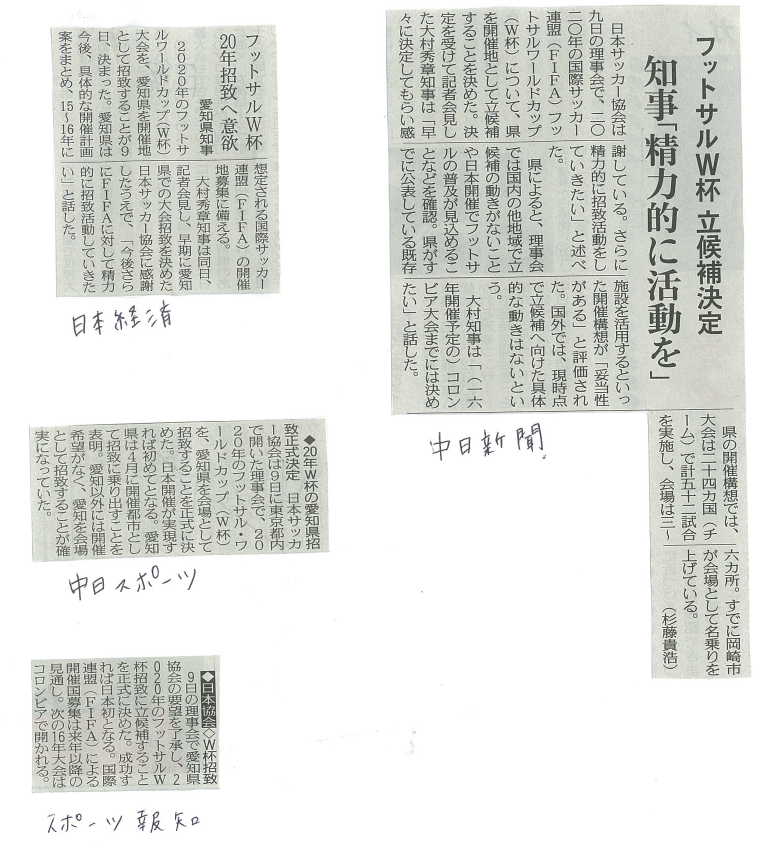 フットサルW杯
20年招致へ意欲
愛知県知事
2020年のフットサ
ルワールドカップ(W杯)
大会を、愛知県を開催地
として招致することが9
日、決まった。愛知県は
今後、具体的な開催計画
案をまとめ、15~16年に
想定される国際サッカー
連盟(FIFA)の開催
地募集に備える。
大村秀章知事は同日、
記者会見し、早期に愛知
県での大会招致を決めた
日本サッカー協会に感謝
したうえで、「今後さら
にFIFAに対して精力
的に招致活動していきた
い」と話した。
日本経済
フットサルW杯 立候補決定
知事「精力的に活動を」
日本サッカー協会は
九日の理事会で、二〇
二〇年の国際サッカー
連盟(FIFA)フッ
トサルワールドカップ
(W杯)について、県
を開催地として立候補
することを決めた。決
定を受けて記者会見し
た大村秀章知事は「早
々に決定してもらい感
謝している。さらに
精力的に招致活動をし
ていきたい」と述べ
た。
県によると、理事会
では国内の他地域で立
候補の動きがないこと
や日本開催でフットサ
ルの普及が見込めるこ
となどを確認。県がす
でに公表している既存
施設を活用するといっ
た開催構想が「妥当性
がある」と評価され
た。国外では、現時点
で立候補へ向けた具体
的な動きはないとい
う。
大村知事は「(一六
年開催予定の)コロン
ビア大会までには決め
たい」と話した。
県の開催構想では、
大会は二十四カ国(チ
ーム)で計五十二試合
を実施し、会場は三~
六カ所。すでに岡崎市
が会場として名乗りを
上げている。
(杉藤貴浩)
中日新聞
◆20年W杯の愛知県招
致正式決定 日本サッカ
ー協会は9日に東京都内
で開いた理事会で、20
20年のフットサル・ワ
ールドカップ(W杯)
を、愛知県を会場として
招致することを正式に決
めた。日本開催が実現す
れば初めてとなる。愛知
県は4月に開催都市とし
て招致に乗り出すことを
表明。愛知以外には開催
希望がなく、愛知を会場
として招致することが確
実になっていた。
中日スポーツ
◆日本協会◇W杯招致
9日の理事会で愛知県
協会の要望を了承し、2
020年のフットサルW
杯招致に立候補すること
を正式に決めた。成功す
れば日本初となる。国際
連盟(FIFA)による
開催国募集は来年以降の
見通し。次の16年大会は
コロンビアで開かれる。
スポーツ報知